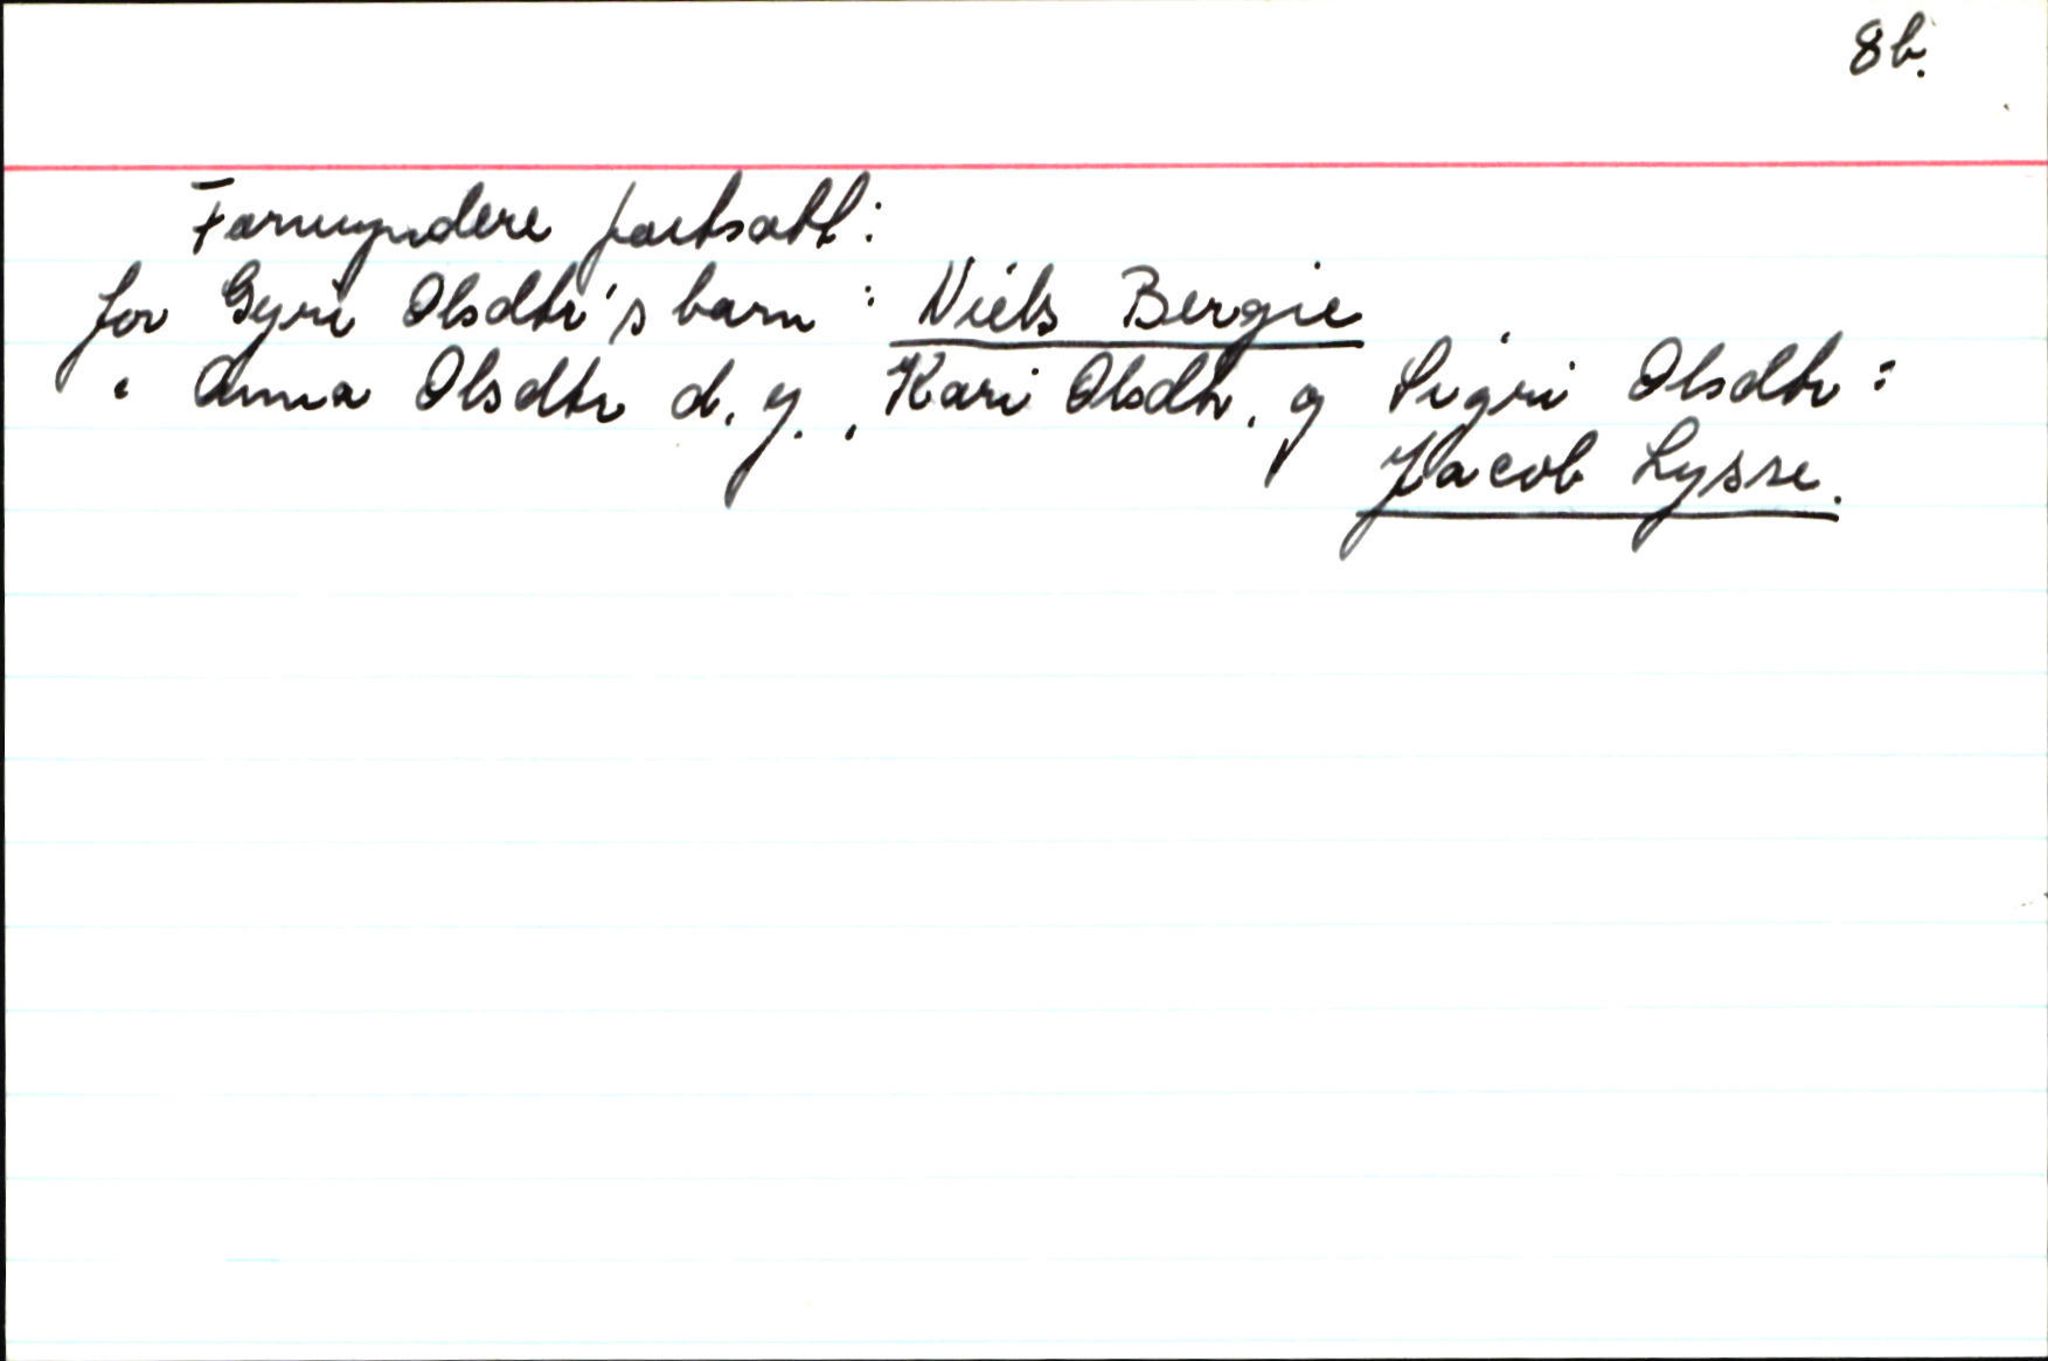 8b.
Formyndere fortsatt:
for Gyri Olsdtr's barn : Niels Bergie
" Anna Olsdtr d.y., Kari Olsdtr. og Sigri Olsdtr :
Jacob Lysse.